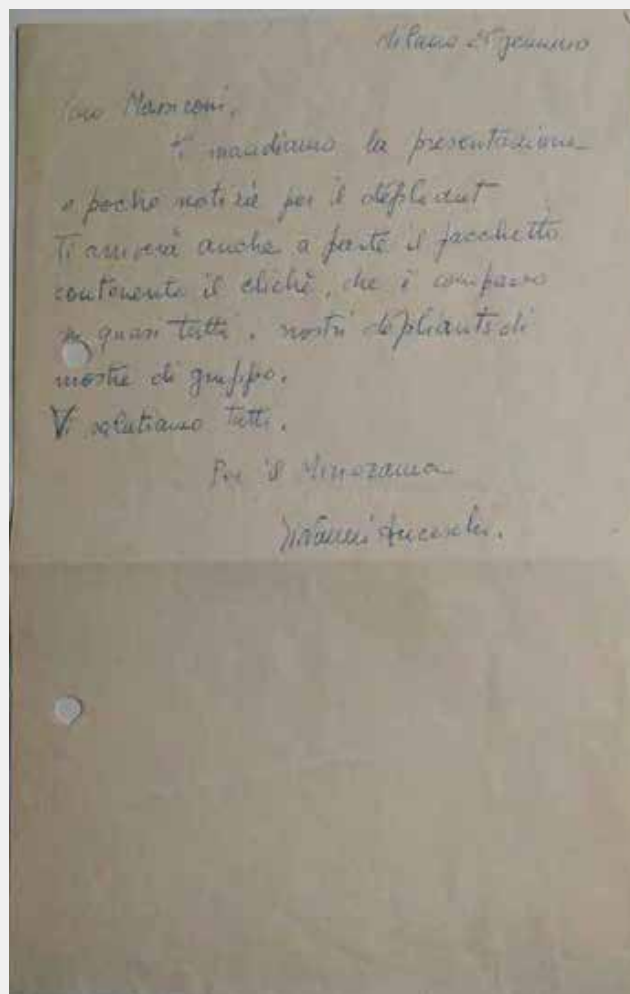 Milano 25 gennaio
Caro Massironi,
ti mandiamo la presentazione
e poche notizie per il dépliant
Ti arriverà anche a parte il pacchetto
contenente il clichè, che è comparso
in quasi tutti i nostri dépliants di
mostre di gruppo.
Vi salutiamo tutti.
Per il Miriorama
Giovanni Anceschi.